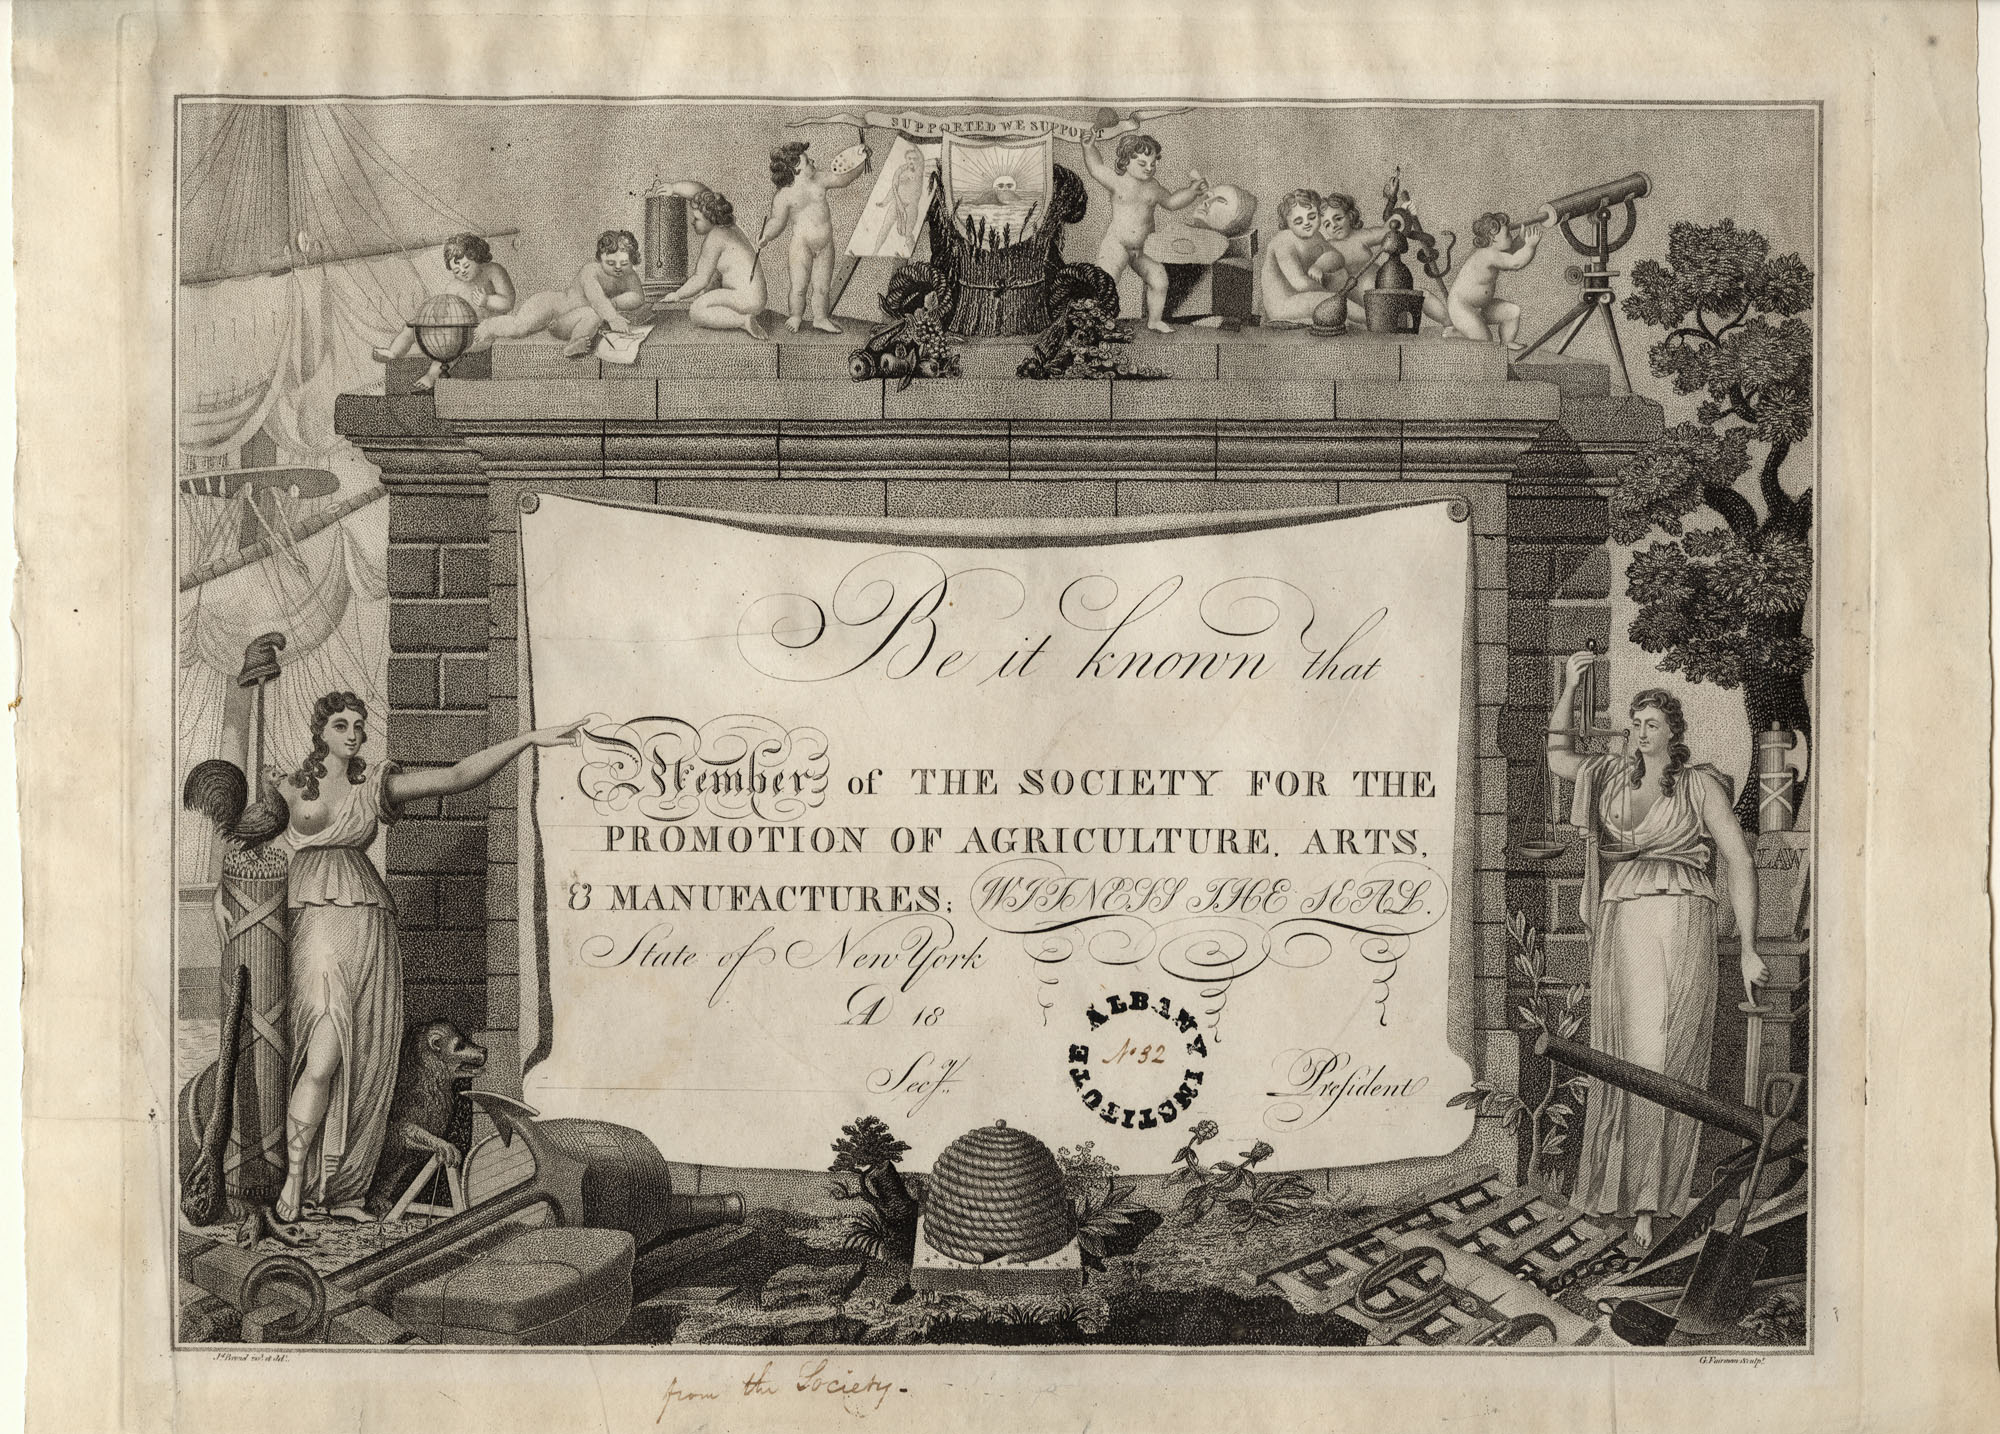 SUPPORTED WE SUPPORT
Be it known that
Member of THE SOCIETY FOR THE
PROMOTION OF AGRICULTURE, ARTS,
& MANUFACTURES; WITNESS THE SEAL.
State of New York
AD 18
Secy.
President
ALBANY INSTITUTE
No 32
LAW
G. Fairman Sculpt.
from the Society-